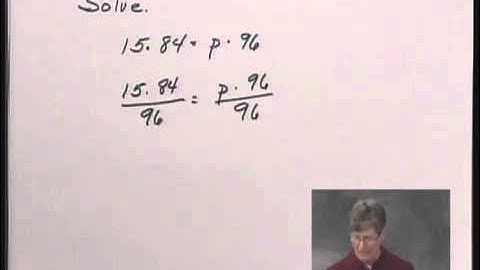 Solve.
15.84 = p · 96
15.84 / 96 = p · 96 / 96